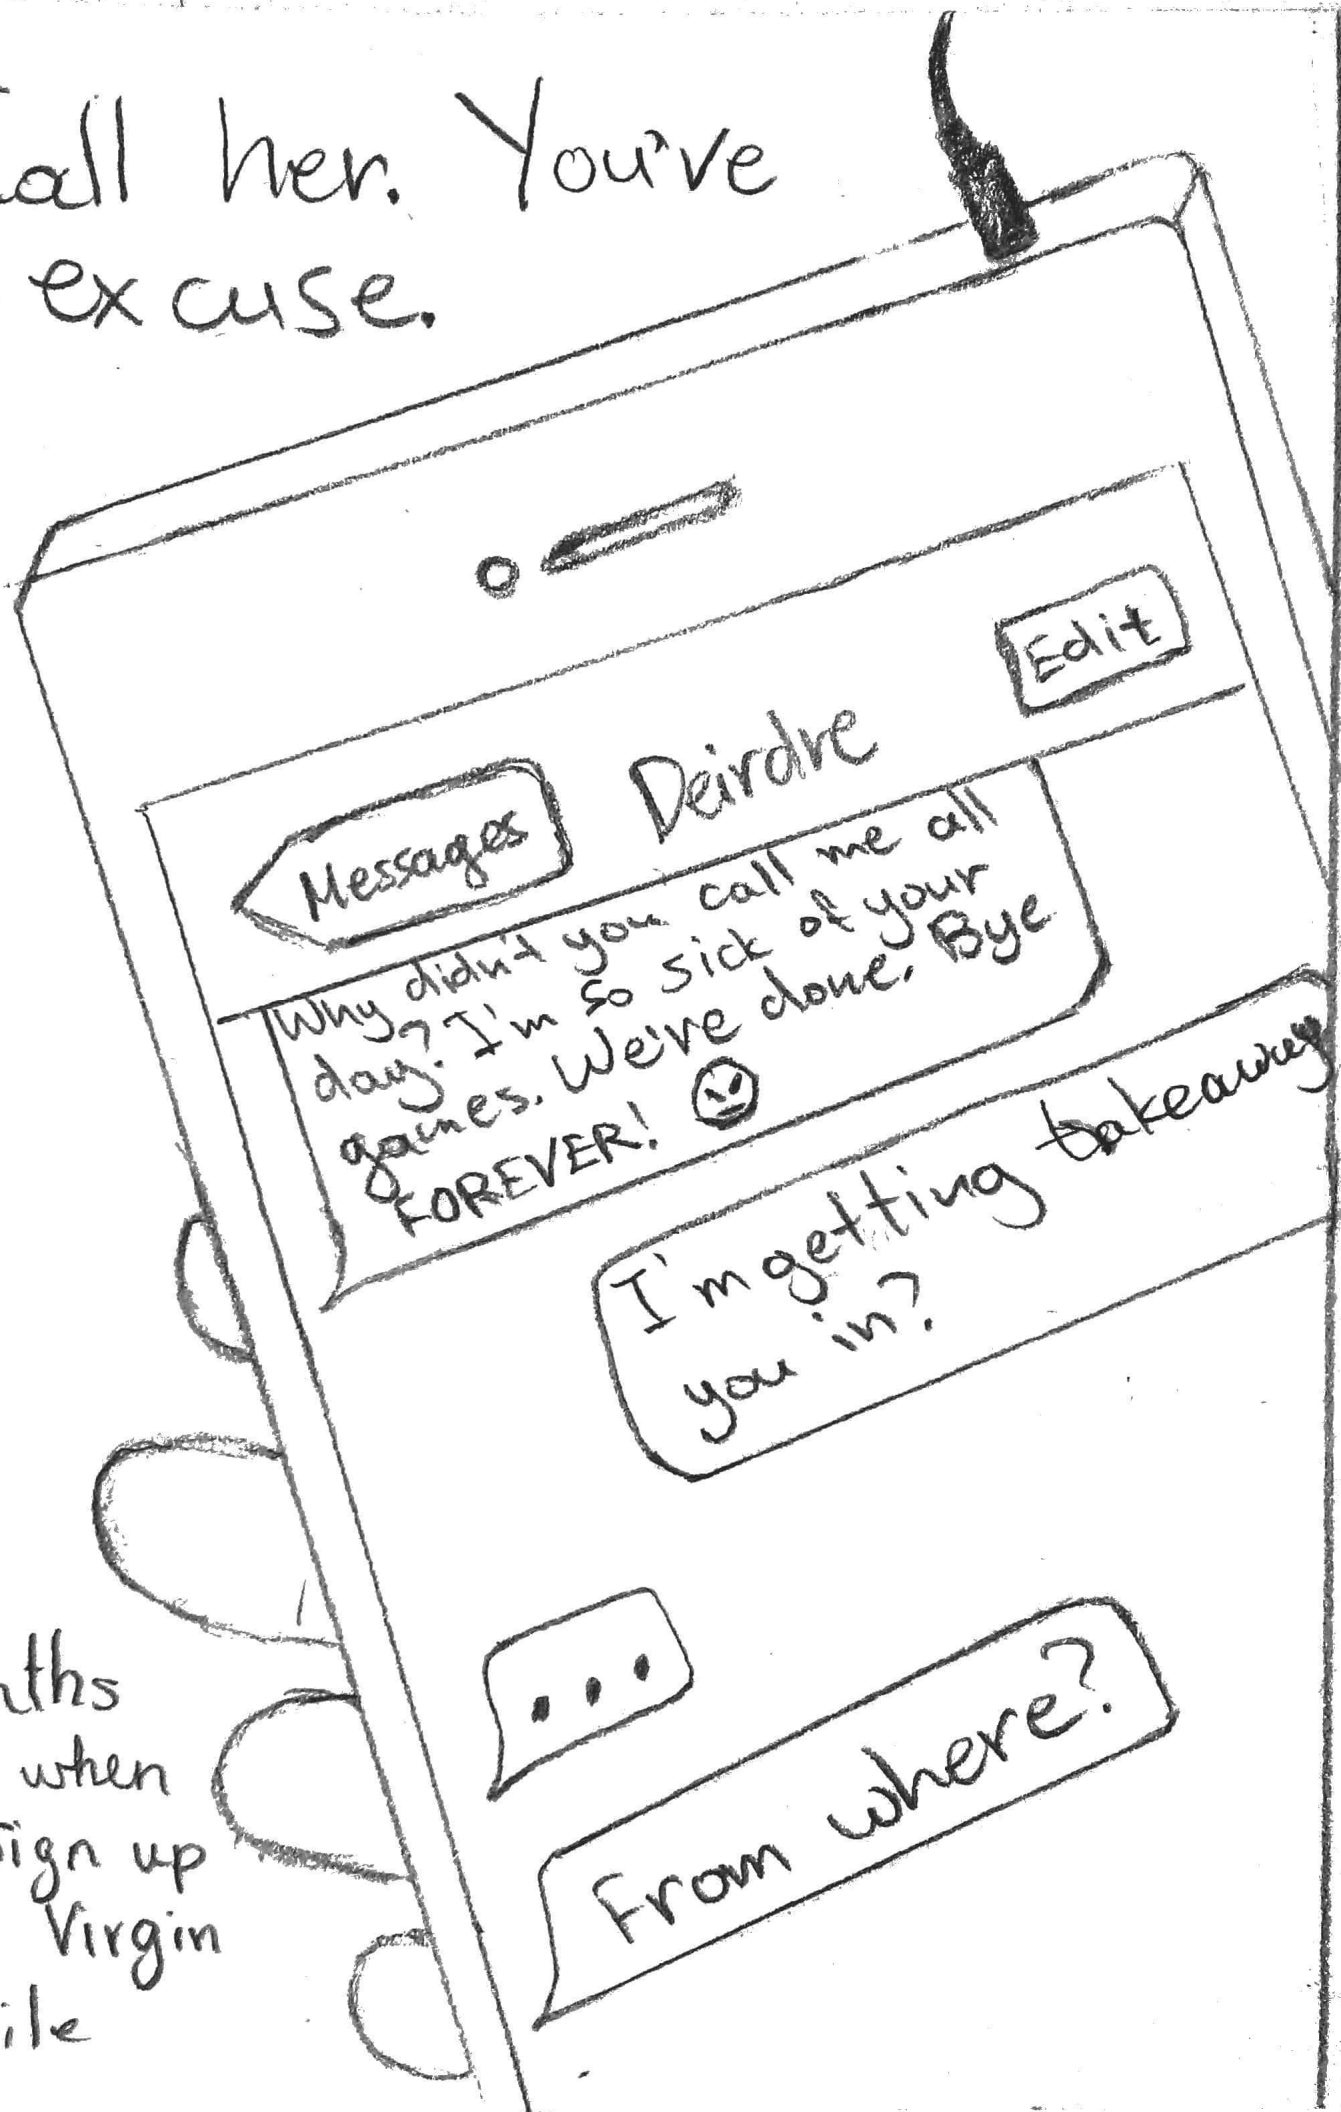 all her. You've
excuse.
Edit
Messages
Deirdre
Why didn't you call me all
day? I'm so sick of your
games. We've done. Bye
FOREVER!
I'm getting takeaway
you in?
...
From where?
ths
when
sign up
Virgin
ile